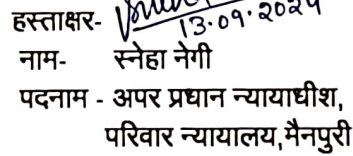 हस्ताक्षर-
13.09.2024
नाम- स्नेहा नेगी
पदनाम - अपर प्रधान न्यायाधीश,
परिवार न्यायालय,मैनपुरी